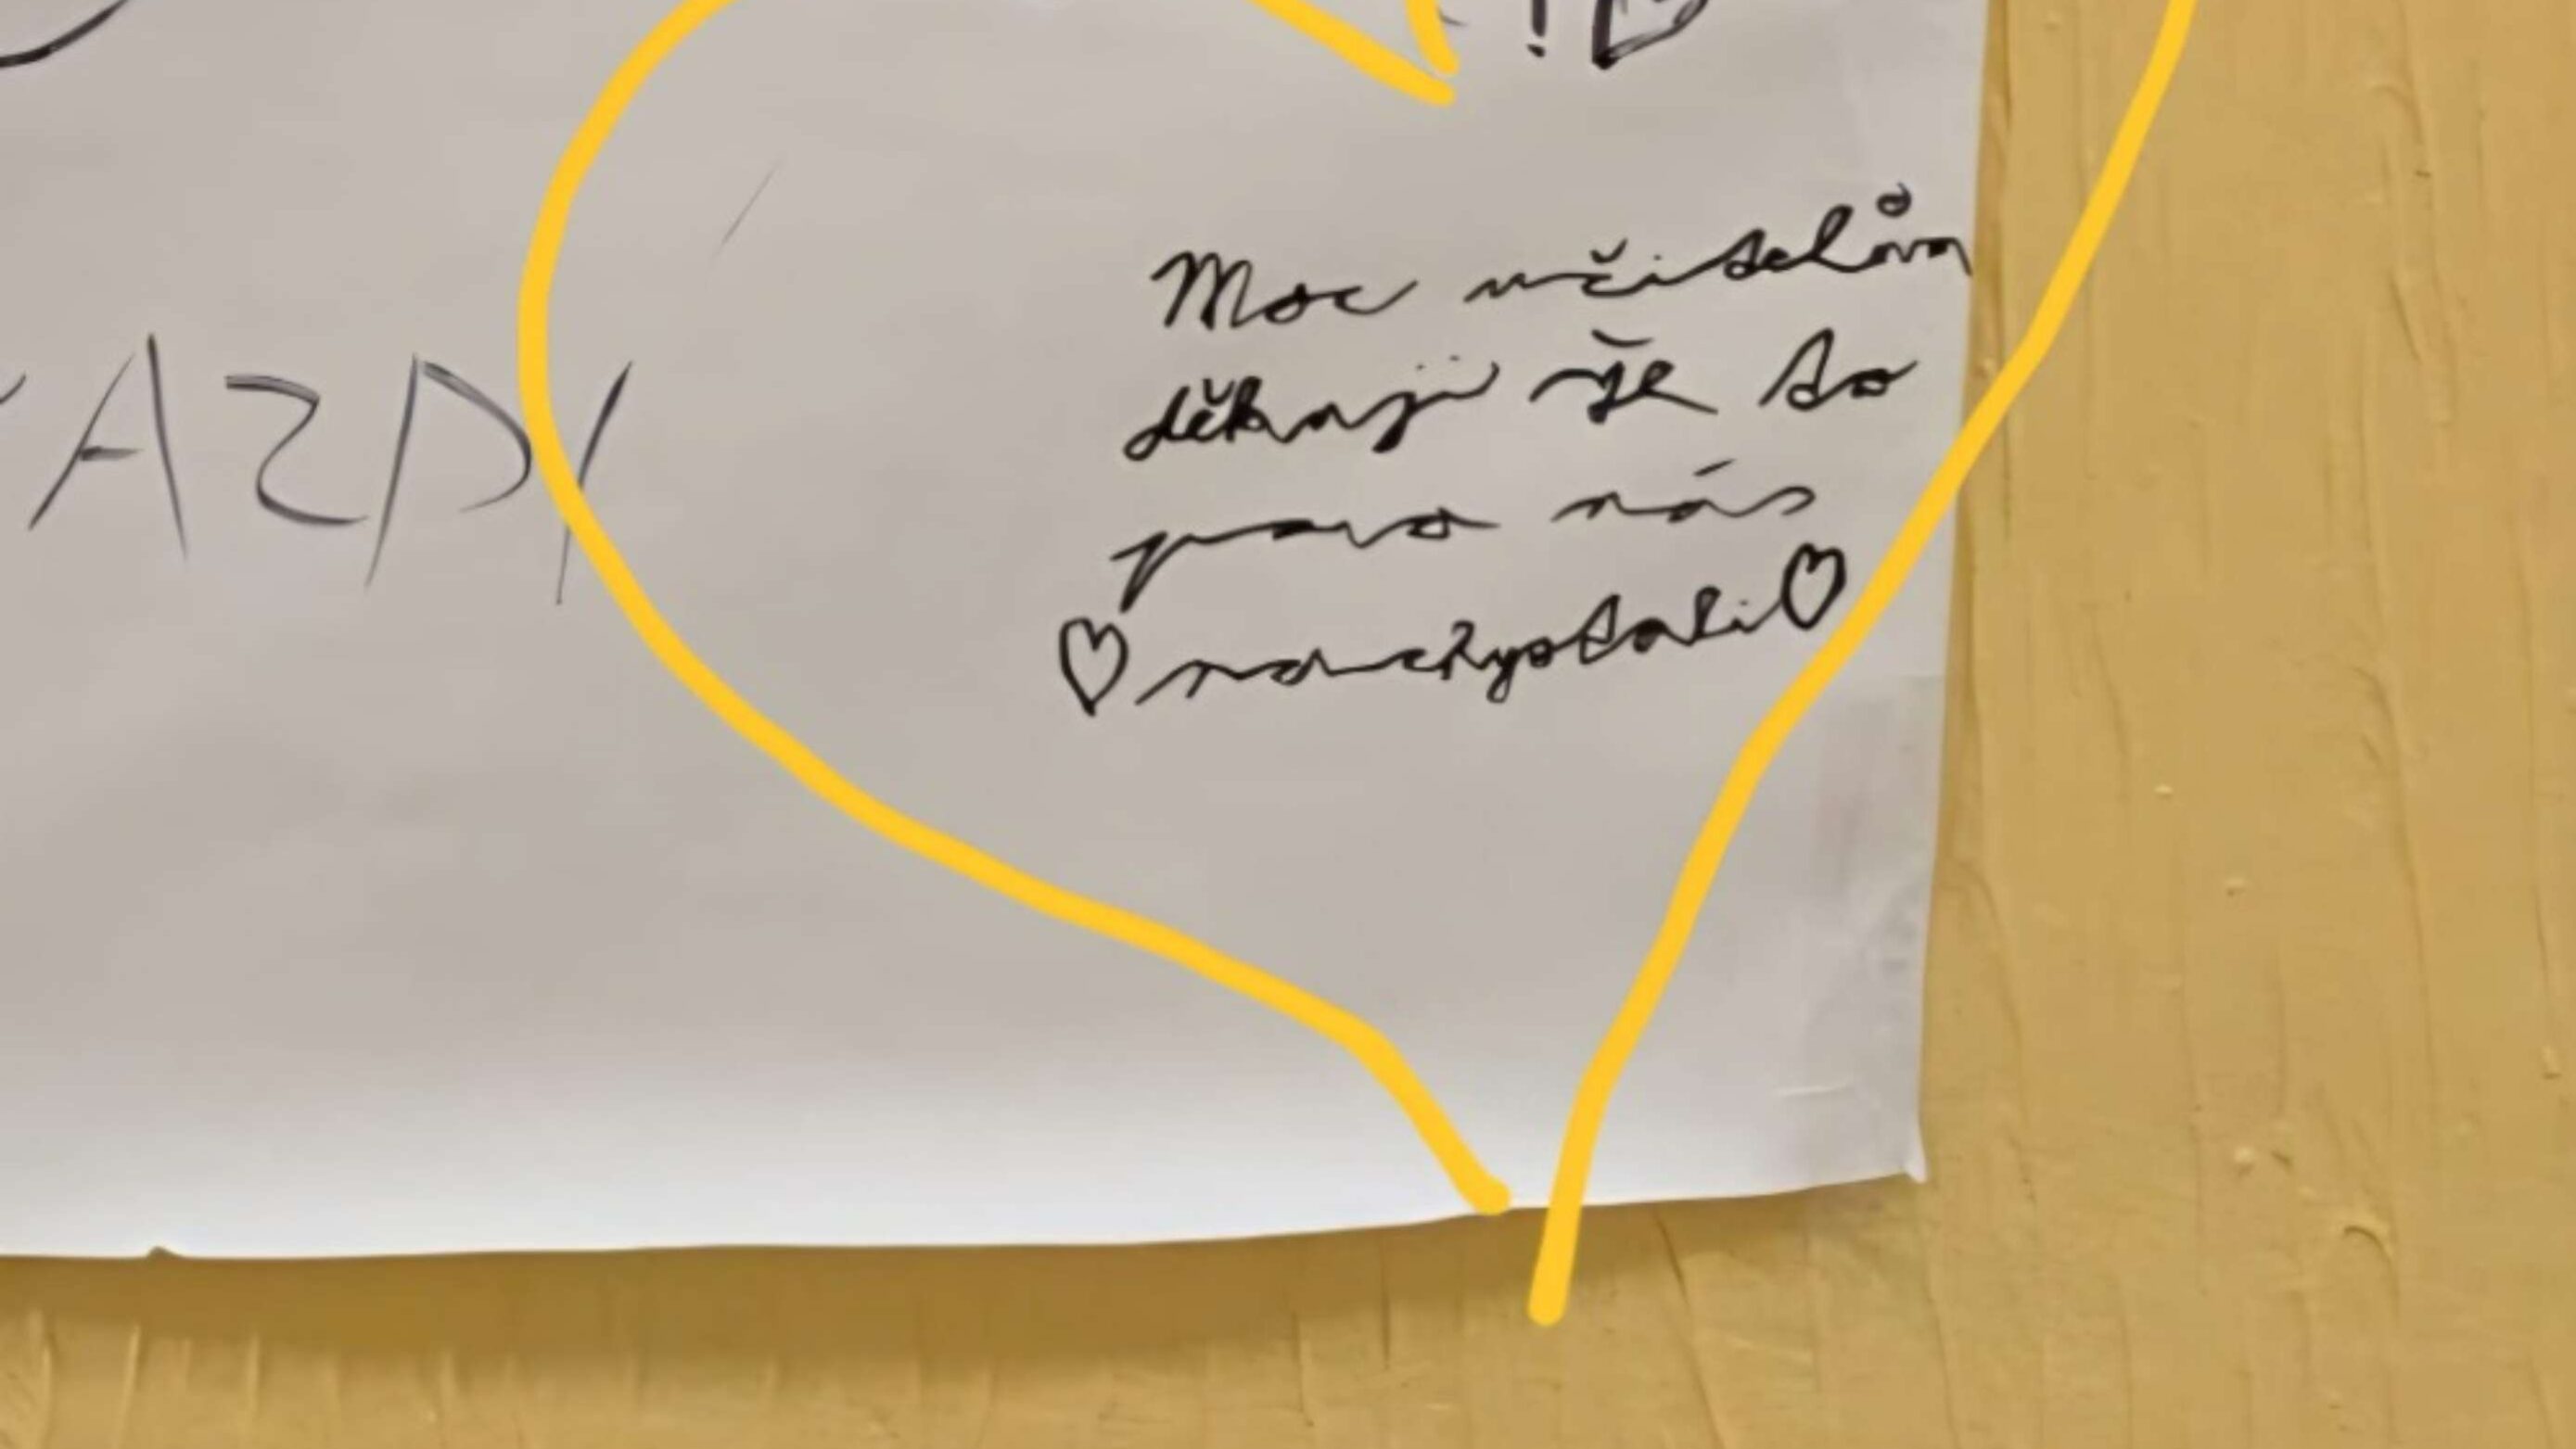 !
AZDY
Moc učitelům
děkuji že to
pro nás
♡ nachystali ♡